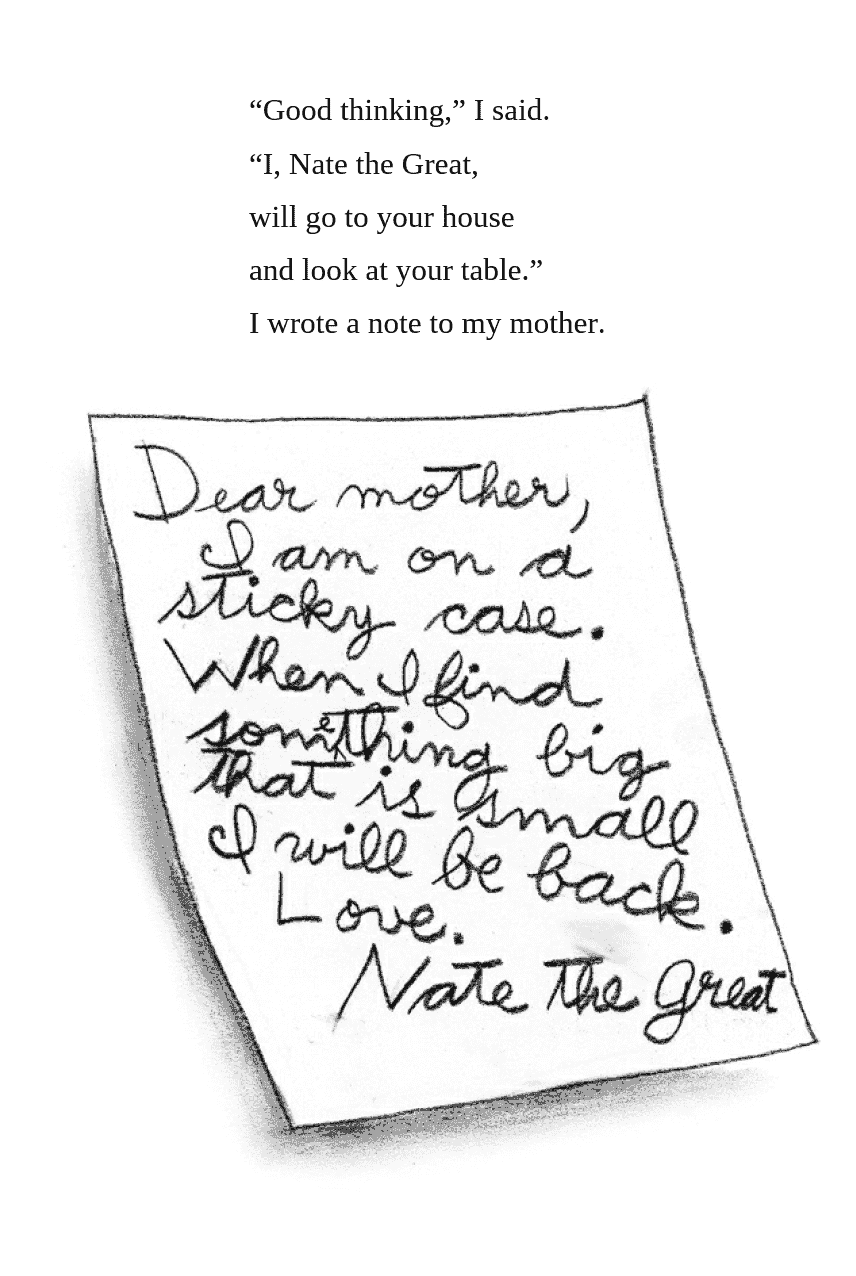 “Good thinking,” I said.
“I, Nate the Great,
will go to your house
and look at your table.”
I wrote a note to my mother.
Dear mother,
I am on a
sticky case.
When I find
something big
that is small
I will be back.
Love.
Nate the Great